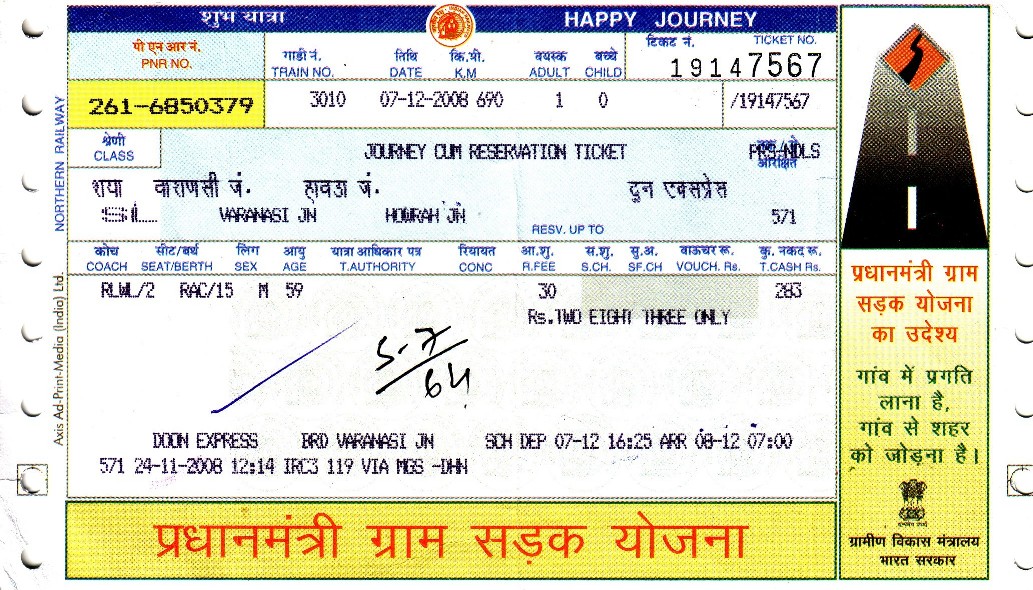 शुभ यात्रा HAPPY JOURNEY
पी एन आर नं. गाडी नं. तिथि कि.मी. वयस्क बच्चे टिकट नं. TICKET NO.
PNR NO. TRAIN NO. DATE K.M ADULT CHILD 19147567
261-6850379 3010 07-12-2008 690 1 0 /19147567
श्रेणी
CLASS JOURNEY CUM RESERVATION TICKET PRS-NDLS
आरक्षित
शया वाराणसी जं. हावडा जं. दून एक्सप्रेस
SL VARANASI JN HOWRAH JN 571
RESV. UP TO
कोच सीट/बर्थ लिंग आयु यात्रा अधिकार पत्र रियायत आ.शु. स.शु. सु.अ. वाऊचर रू. कु. नकद रू.
COACH SEAT/BERTH SEX AGE T.AUTHORITY CONC R.FEE S.CH. SF.CH VOUCH. Rs. T.CASH Rs.
RLWL/2 RAC/15 M 59 30 283
Rs.TWO EIGHT THREE ONLY
S-7
64
DOON EXPRESS BRD VARANASI JN SCH DEP 07-12 16:25 ARR 08-12 07:00
571 24-11-2008 12:14 IRC3 119 VIA MGS -DHN
प्रधानमंत्री ग्राम सड़क योजना
NORTHERN RAILWAY
Axis Ad-Print-Media (India) Ltd.
प्रधानमंत्री ग्राम
सड़क योजना
का उदेश्य
गांव में प्रगति
लाना है,
गांव से शहर
को जोड़ना है।
ग्रामीण विकास मंत्रालय
भारत सरकार